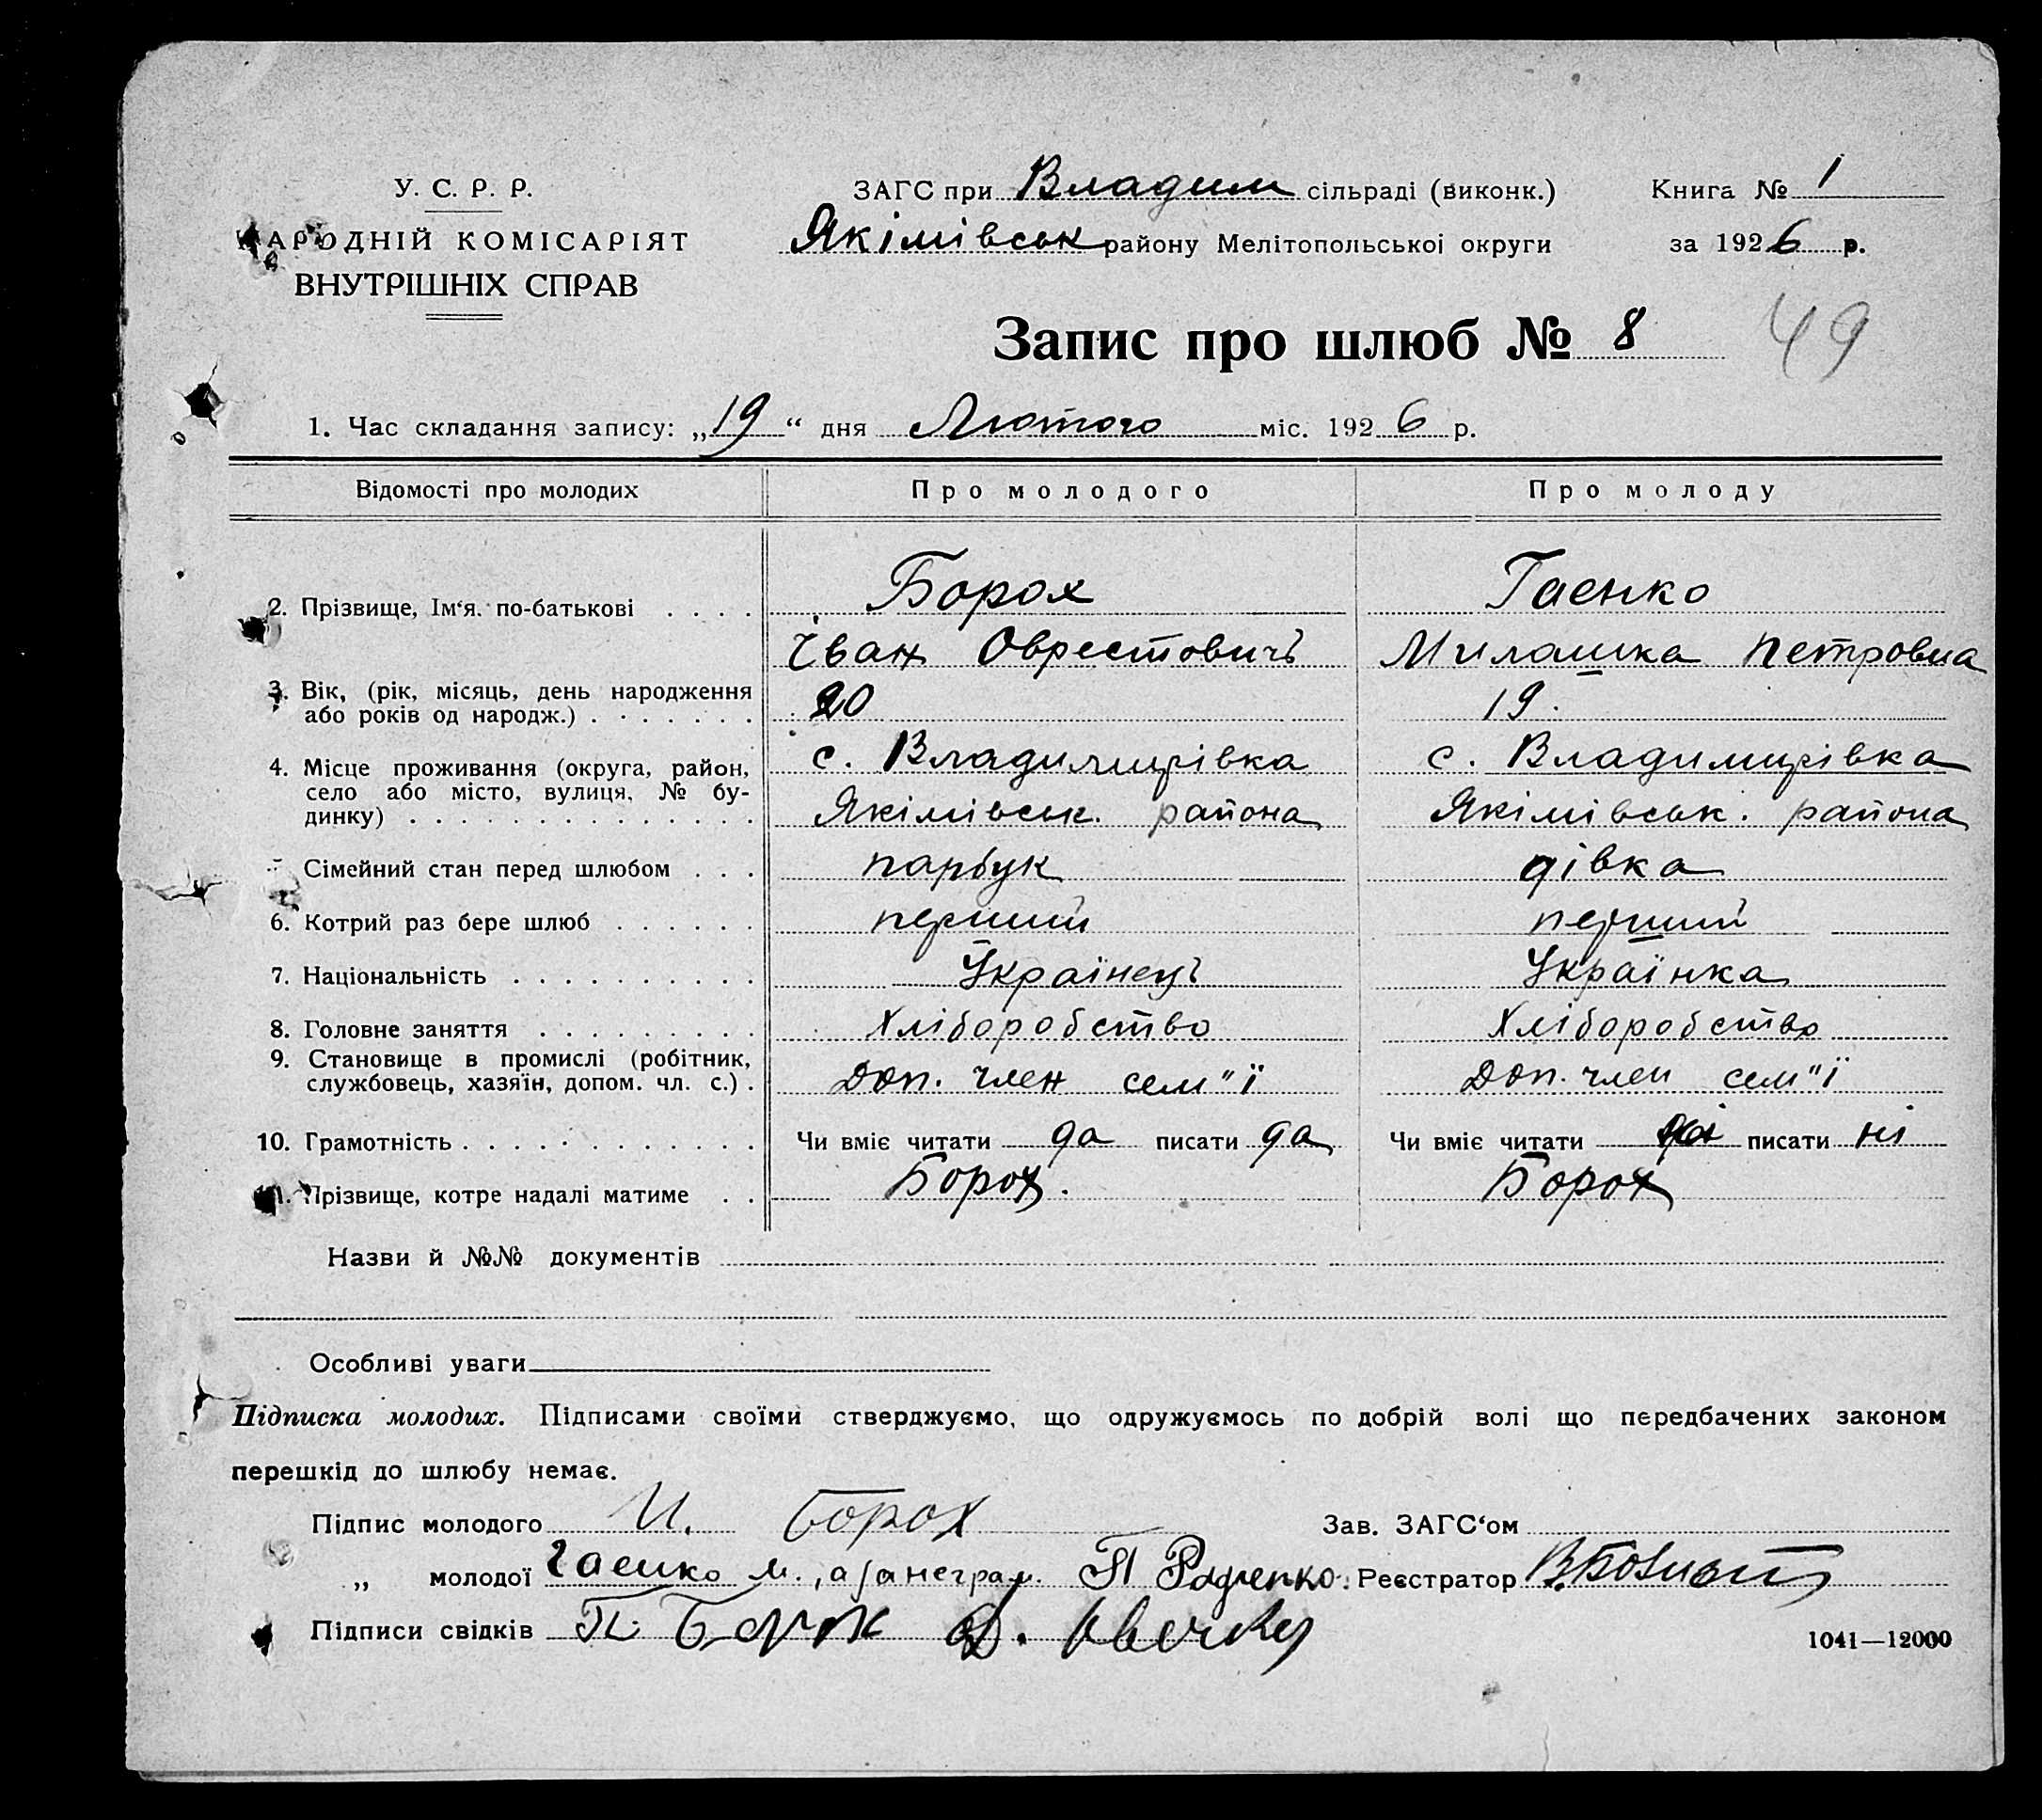 У. С. Р. Р.
НАРОДНІЙ КОМІСАРІЯТ
ВНУТРІШНІХ СПРАВ
ЗАГС при Владим сільраді (виконк.)
Якімівськ району Мелітопольської округи
Книга № 1
за 1926 р.
Запис про шлюб № 8
49
1. Час складання запису: „19“ дня Лютого міс. 1926 р.
Відомості про молодих Про молодого Про молоду
2. Прізвище, Ім‘я. по-батькові . . . . Борох Гаенко
Іван Оврестовичъ Милашка Петровна
3. Вік, (рік, місяць, день народження
або років од народж.) . . . . . . . 20 19.
4. Місце проживання (округа, район, с. Владимирівка с. Владимирівка
село або місто, вулиця, № бу-
динку) . . . . . . . . . . . . . . Якімівськ. района Якімівськ. района
Сімейний стан перед шлюбом . . . парубук дівка
6. Котрий раз бере шлюб . . . . . . перший перший
7. Національність . . . . . . . . . . Українець Українка
8. Головне заняття . . . . . . . . . Хліборобство Хліборобство
9. Становище в промислі (робітник,
службовець, хазяїн, допом. чл. с.) . Доп. член сем"ї Доп. член сем"ї
10. Грамотність . . . . . . . . . . . . Чи вміє читати да писати да Чи вміє читати писати ні
11. Прізвище, котре надалі матиме . . Борох. Борох
Назви й №№ документів
Особливі уваги
Підписка молодих. Підписами своїми стверджуємо, що одружуємось по добрій волі що передбачених законом
перешкід до шлюбу немає.
Підпис молодого И. Борох Зав. ЗАГС‘ом
„ молодої Гаенко М., а за неграм. П Радченко. Реєстратор
Підписи свідків П. Борох
1041—12000